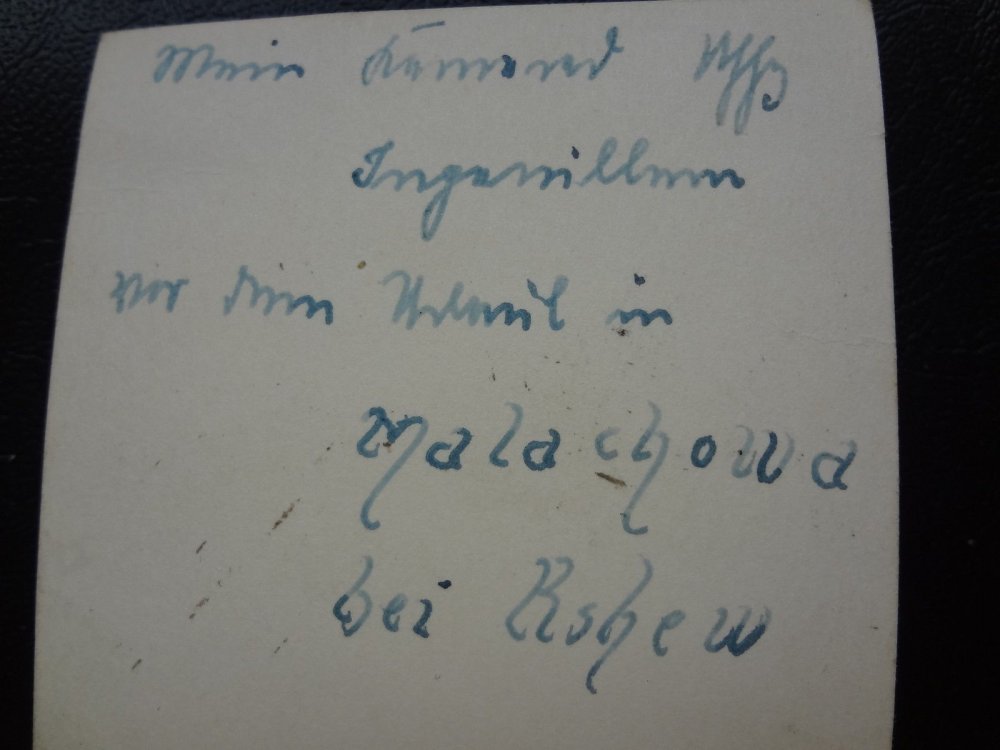 Mein Kamerad Uffz
Ingenillem
vor dem Urlaub in
Malachowa
bei Rshew